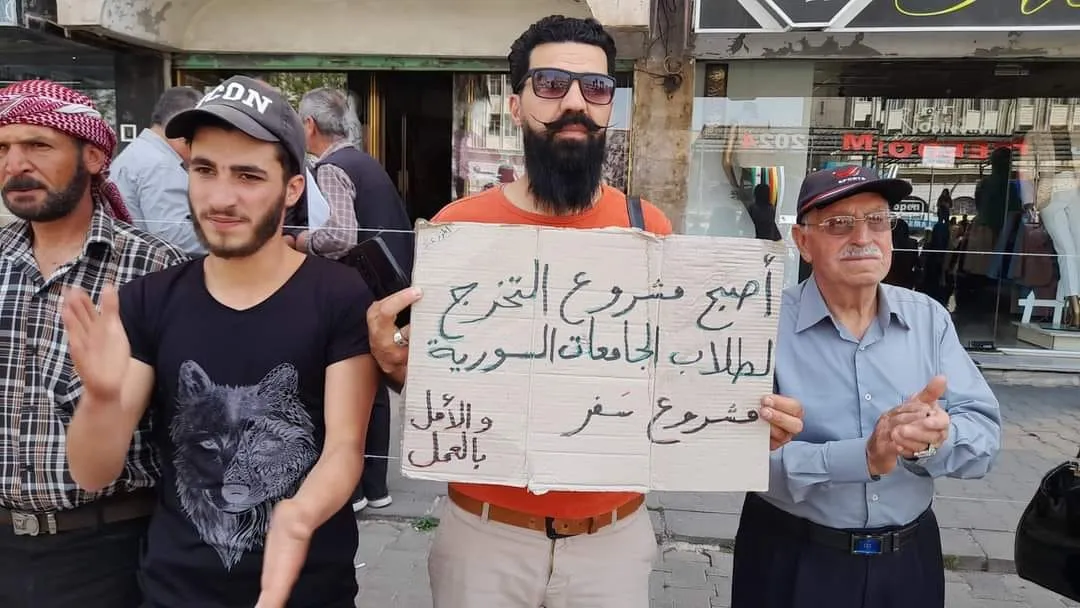 ICON
أصبح مشروع التخرج
لطلاب الجامعات السورية
مشروع سَفر
والأمل
بالعمل
2024
open